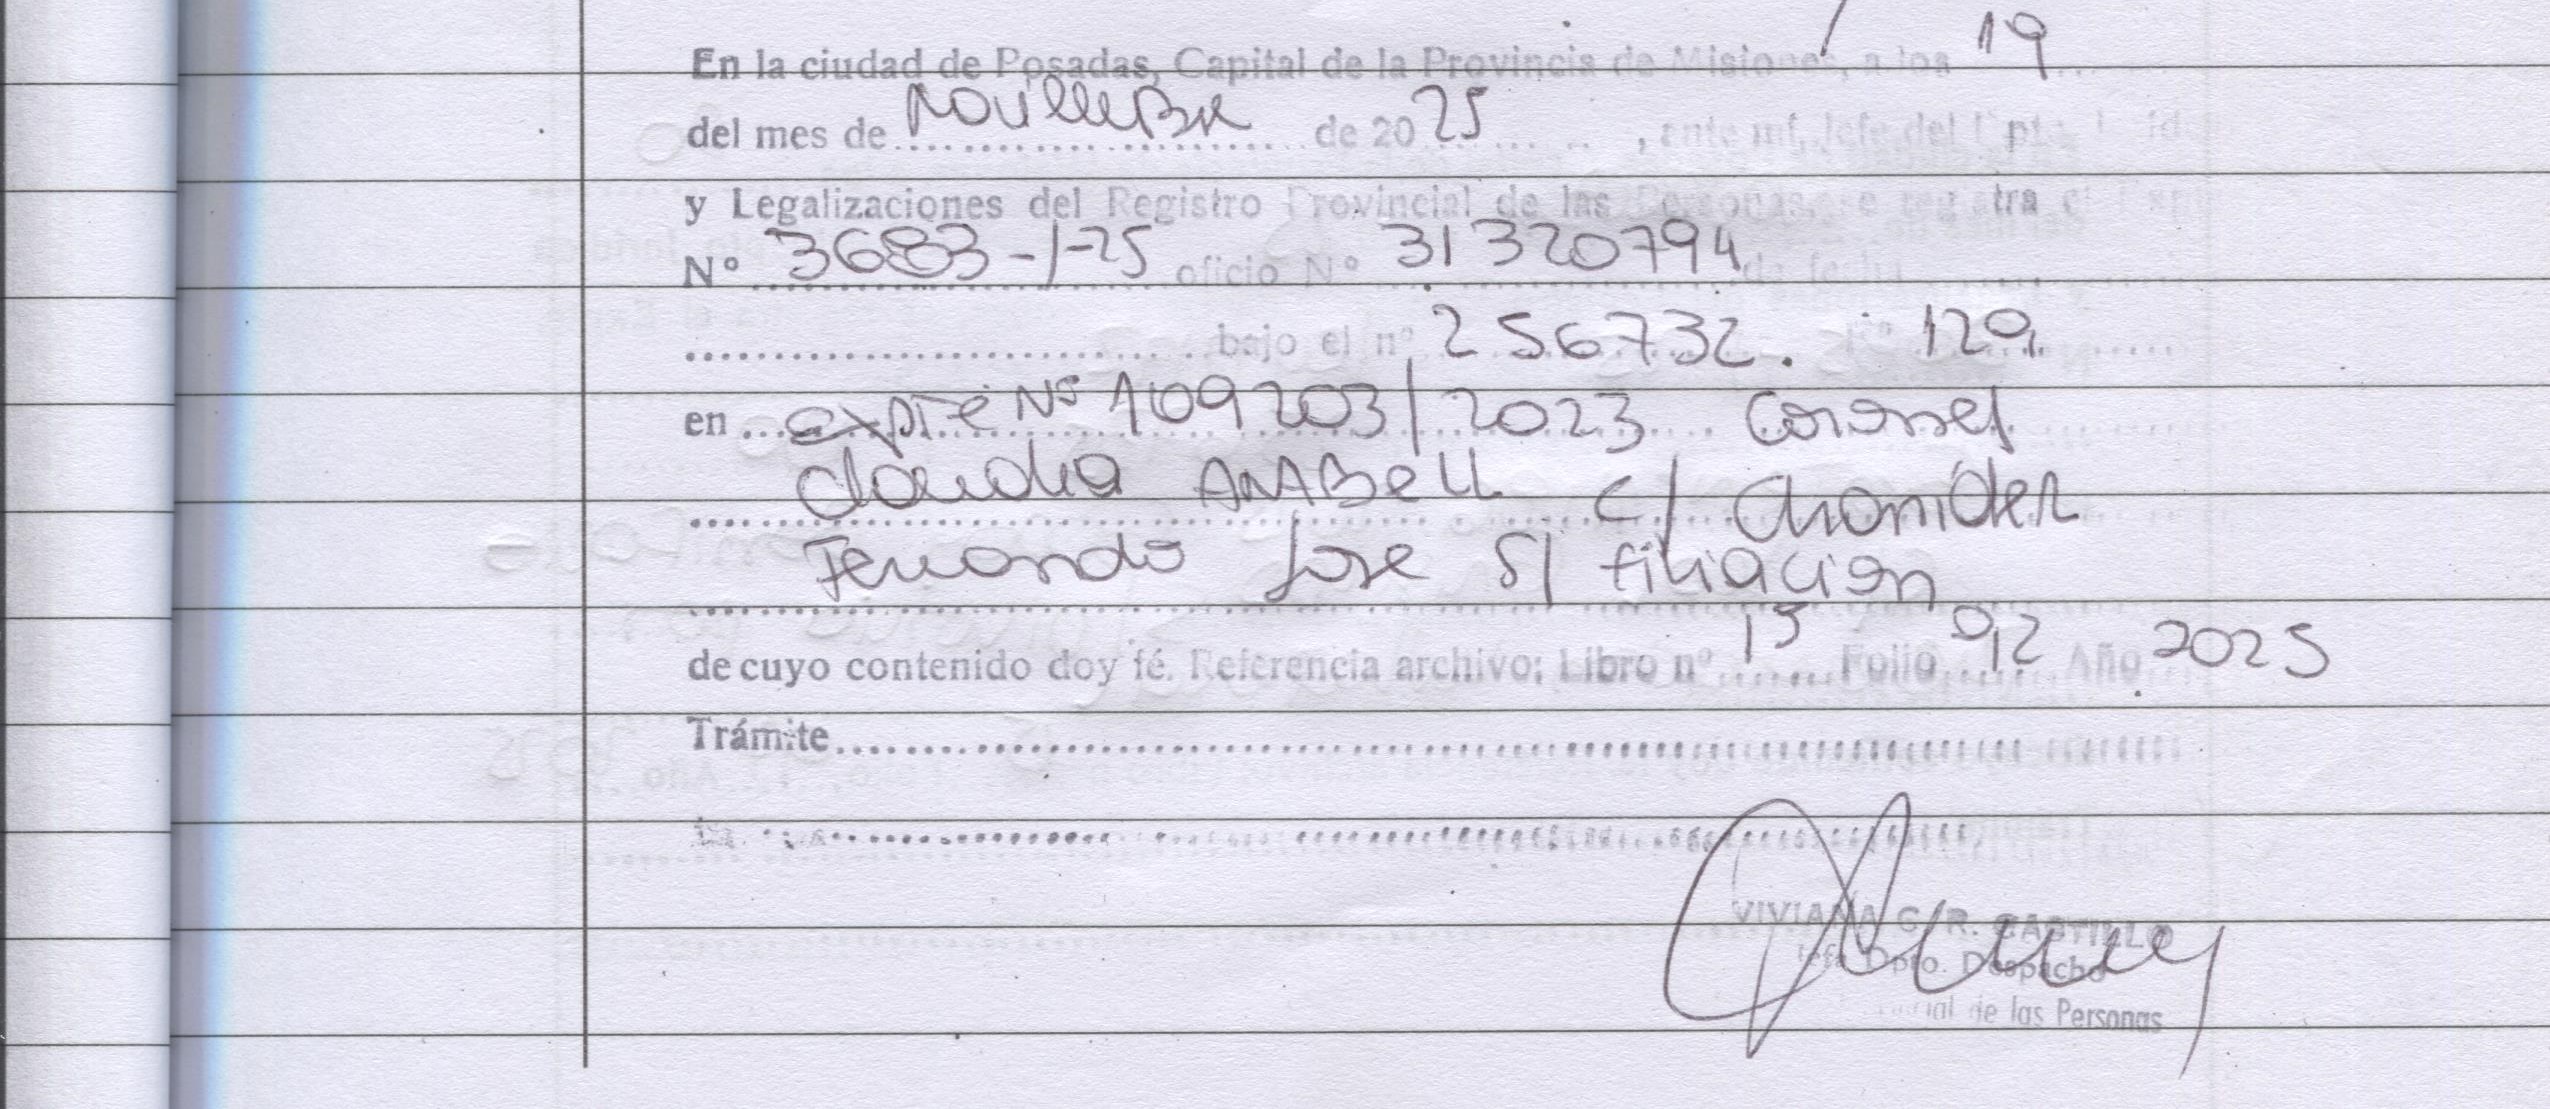 En la ciudad de Posadas, Capital de la Provincia de Misiones, a los 19
del mes de Noviembre de 2025, ante mí, Jefe del Dpto.
y Legalizaciones del Registro Provincial de las Personas, se registra el
Nº 3683-1-25 oficio Nº 31320794 de fecha
bajo el nº 256732. Fº 129
en expte Nº 109203/2023 Coronel
Claudia ANABELL c/
Fernando Jose S/ filiacion
de cuyo contenido doy fé. Referencia archivo: Libro nº 15 Folio 92 Año 2025
Trámite
VIVIANA C. R. CASTILLO
Jefa Dpto. Despacho
de las Personas